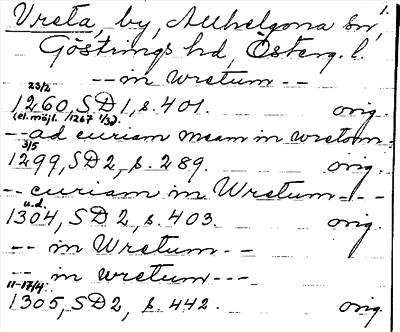 Vreta, by, Allhelgona sn, 1.
Göstrings hd, Österg. l.
-- in wretum --
23/2
1260, SD 1, s. 401. orig.
(el. möjl. 1267 1/3).
-- ad curiam meam in wretom
3/5
1299, SD 2, s. 289. orig.
-- curiam in Wretum ---
u.d.
1304, SD 2, s. 403. orig.
-- in Wretum --
-- in wretum ---
11-17/4
1305, SD 2, s. 442. orig.